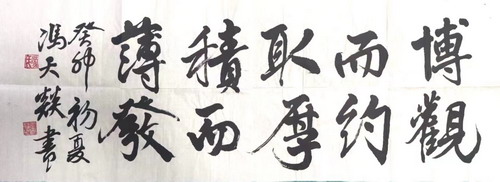 博觀
而約
取厚
積而
薄發
癸卯初夏
馮天燚書